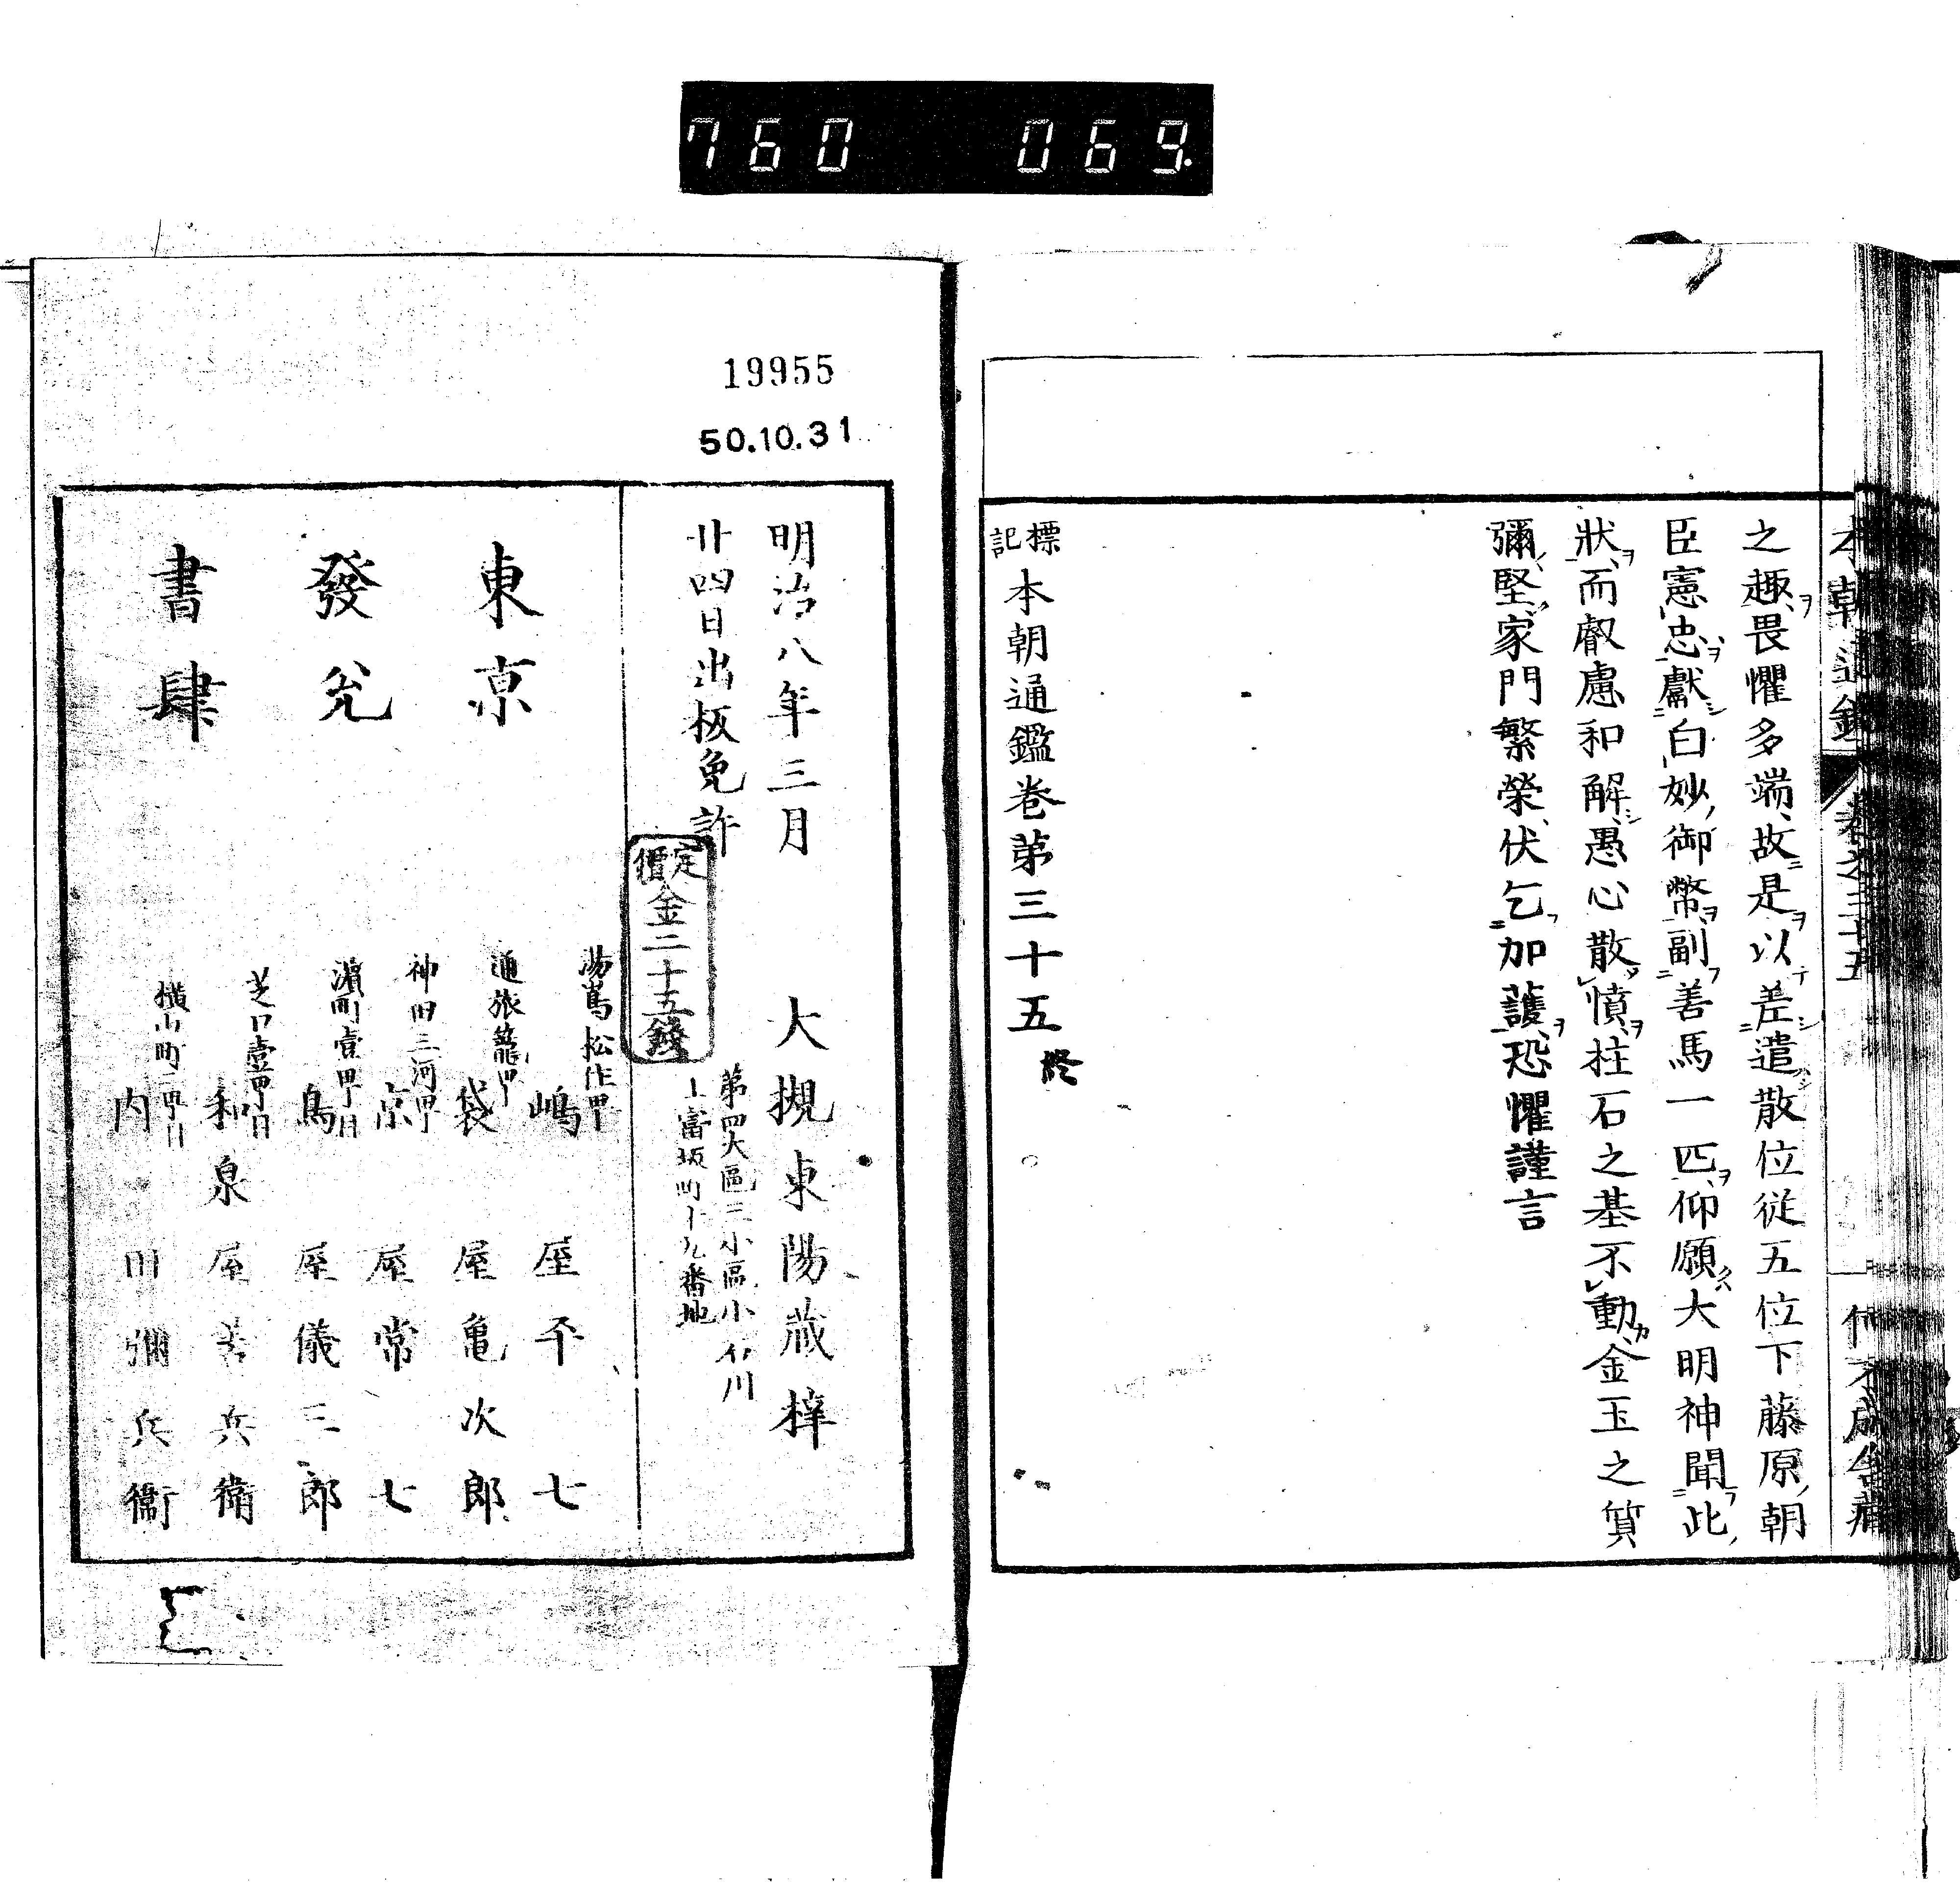 760 069.
本朝通鑑 卷之三十五
之趣、畏懼多端、故是以差遣散位從五位下藤原朝
臣憲忠獻白妙御幣副善馬一匹、仰願大明神聞此
狀、而叡慮和解、愚心散憤、柱石之基不動、金玉之質
彌堅、家門繁榮、伏乞加護、恐懼謹言
標記 本朝通鑑卷第三十五 終
19955
50.10.31
明治八年三月 大槻東陽藏梓
廿四日出板免許
第四大區三小區小石川
上富坂町十九番地
定價金二十五錢
東京
發兌
書肆
嶋屋平七
通旅籠町
袋屋亀次郎
神田三河町
京屋常七
濱町壹町目
鳥屋儀三郎
芝口壹町目
和泉屋善兵衛
橫山町二町目
内田彌兵衞